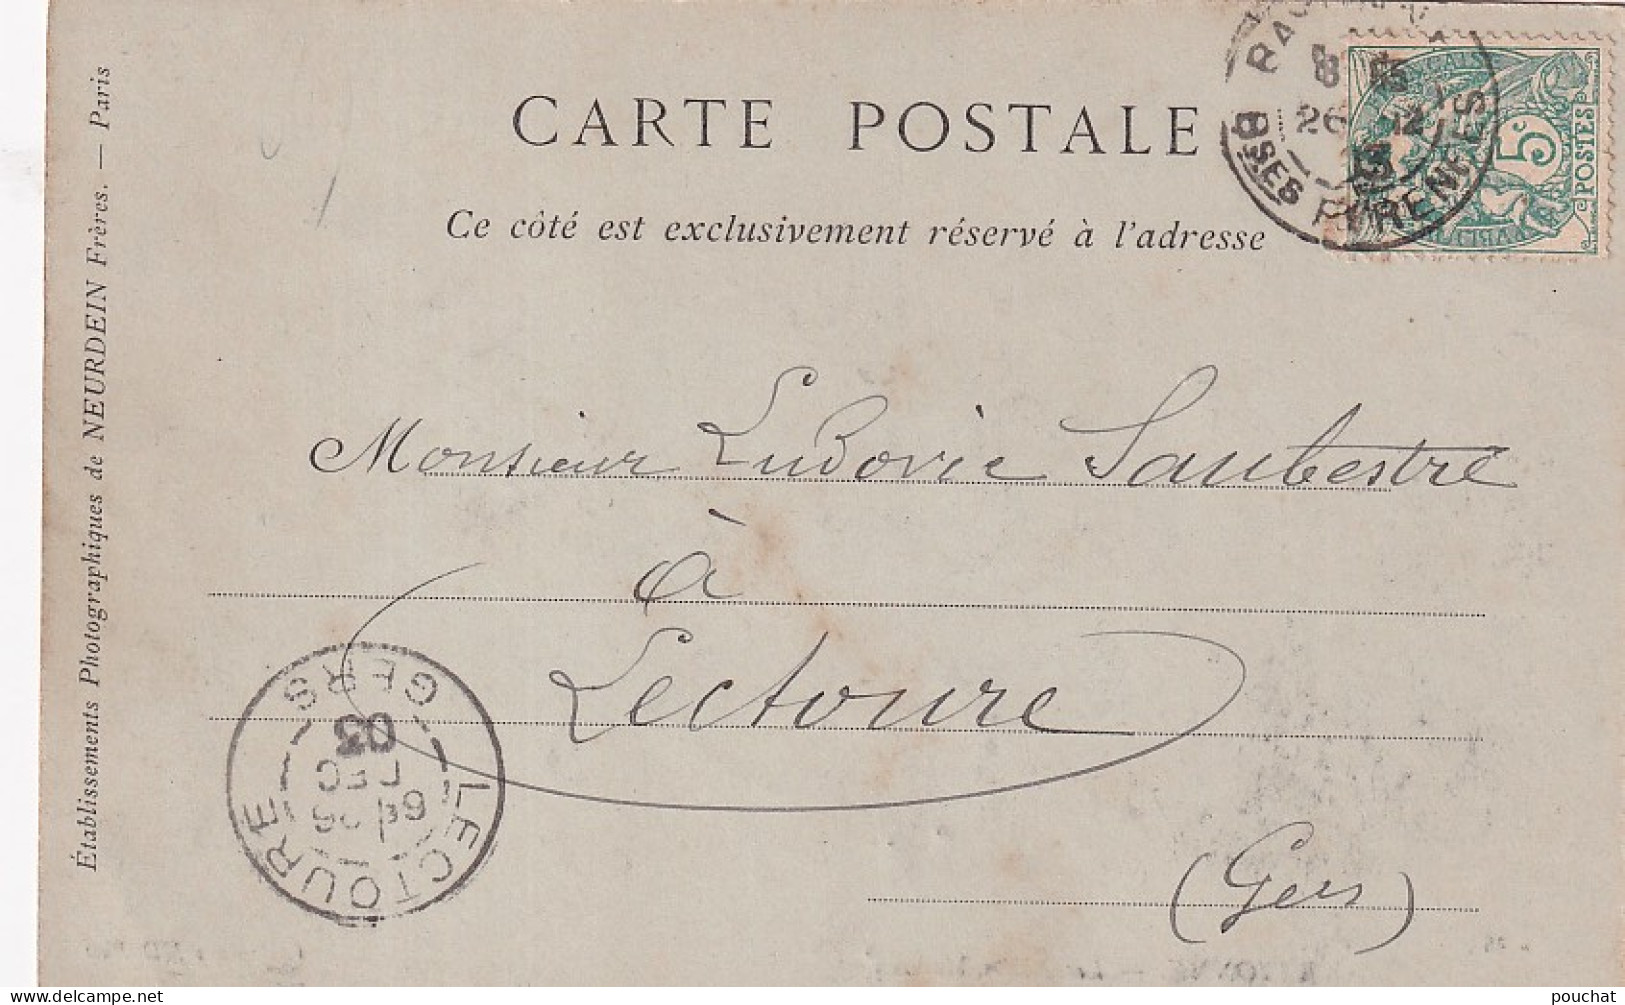 CARTE POSTALE
Ce côté est exclusivement réservé à l'adresse
Établissements Photographiques de NEURDEIN Frères. — Paris
5c
POSTES
26 12
BSES PYRENEES
Monsieur Ludovic Saubestre
à
Lectoure
(Gers)
LECTOURE
GERS
6E 26
DEC
03
pouchat